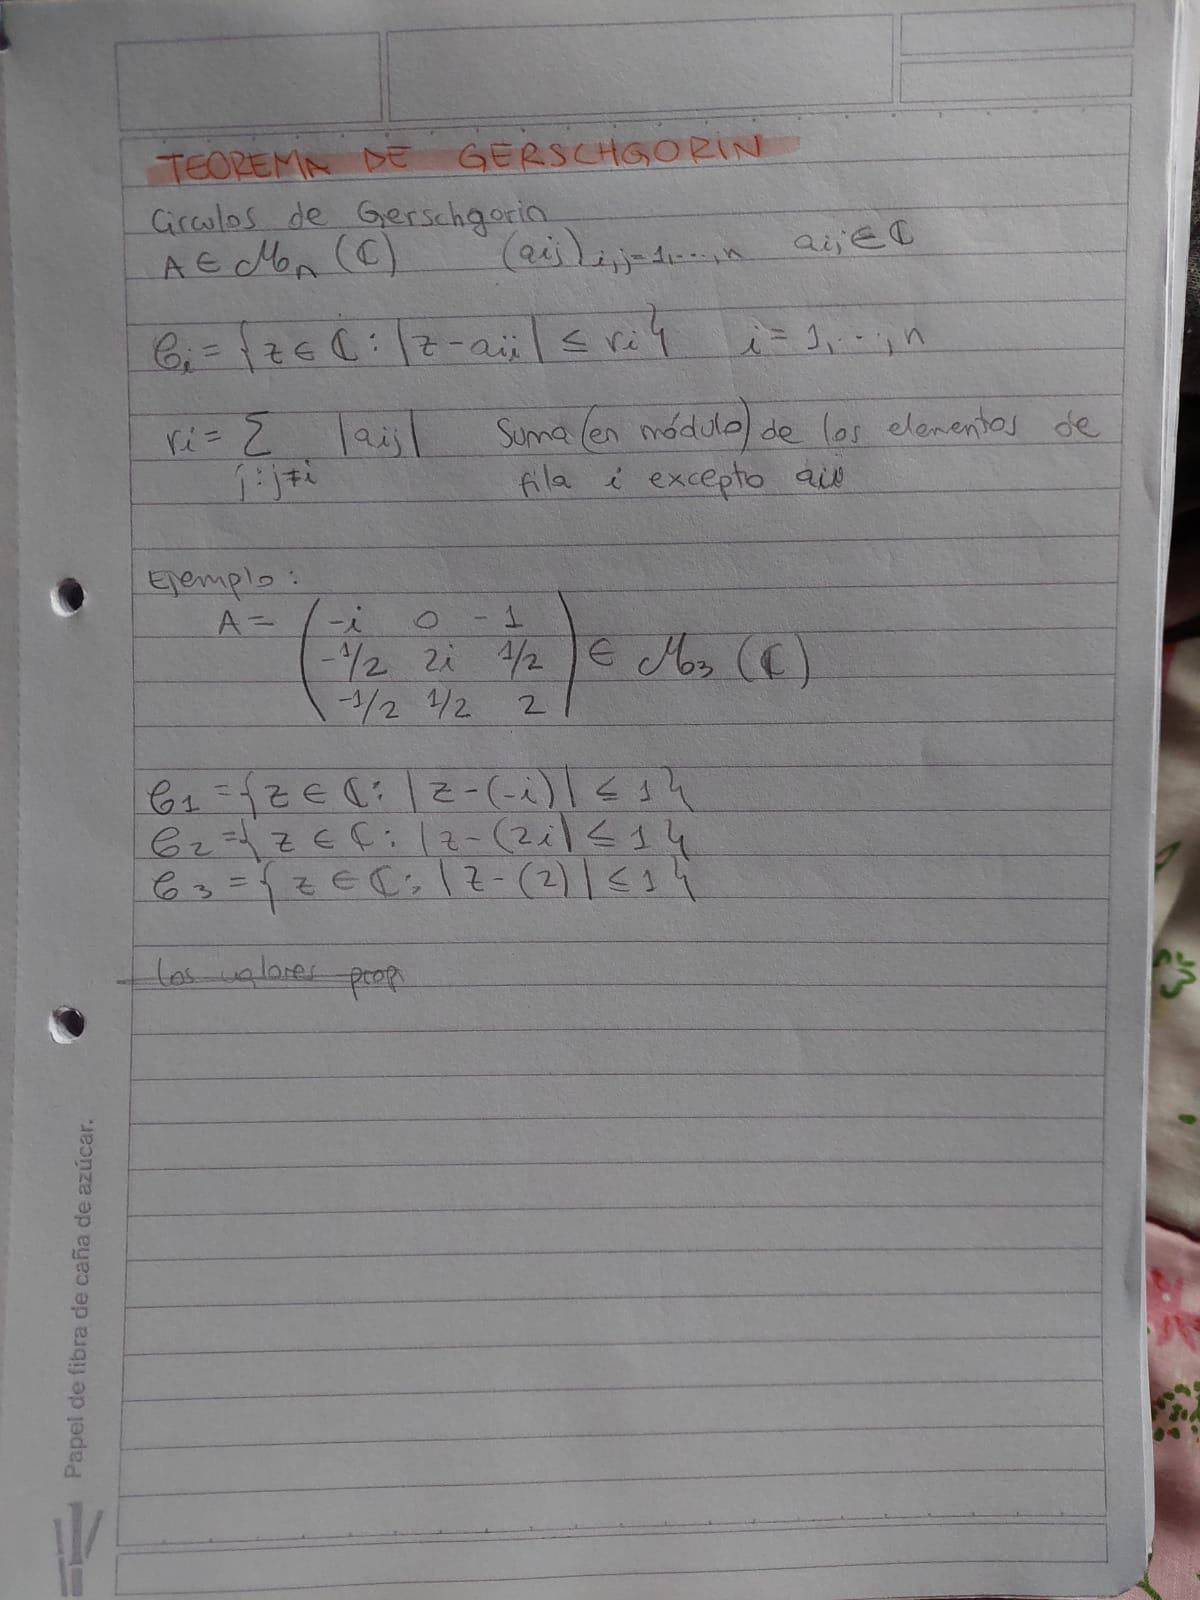 TEOREMA DE GERSCHGORIN
Circulos de Gerschgorin
A ∈ Mn (ℂ) (aij) i,j=1,...,n aij ∈ ℂ
Ci = {z ∈ ℂ : |z - aii| ≤ ri} i = 1,...,n
ri = Σ |aij| Suma (en módulo) de los elementos de
j : j≠i fila i excepto aii
Ejemplo:
A = ( -i 0 -1
-1/2 2i 1/2 ) ∈ M3 (ℂ)
-1/2 1/2 2
C1 = {z ∈ ℂ: |z-(-i)| ≤ 1}
C2 = {z ∈ ℂ: |z-(2i| ≤ 1}
C3 = {z ∈ ℂ: |z-(2)| ≤ 1}
Los valores prop
Papel de fibra de caña de azúcar.